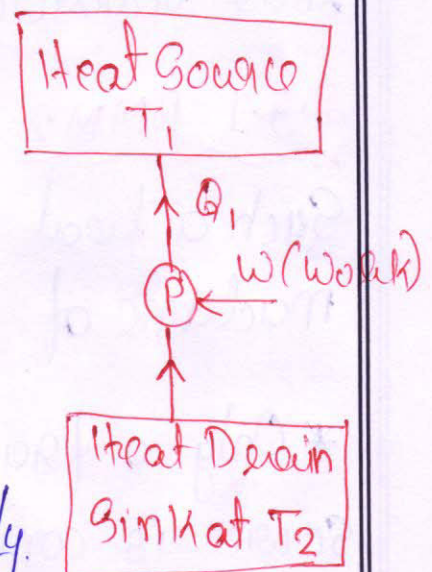 Heat Source
T1
Q1
W (Work)
P
Heat Drain
Sink at T2
ly.